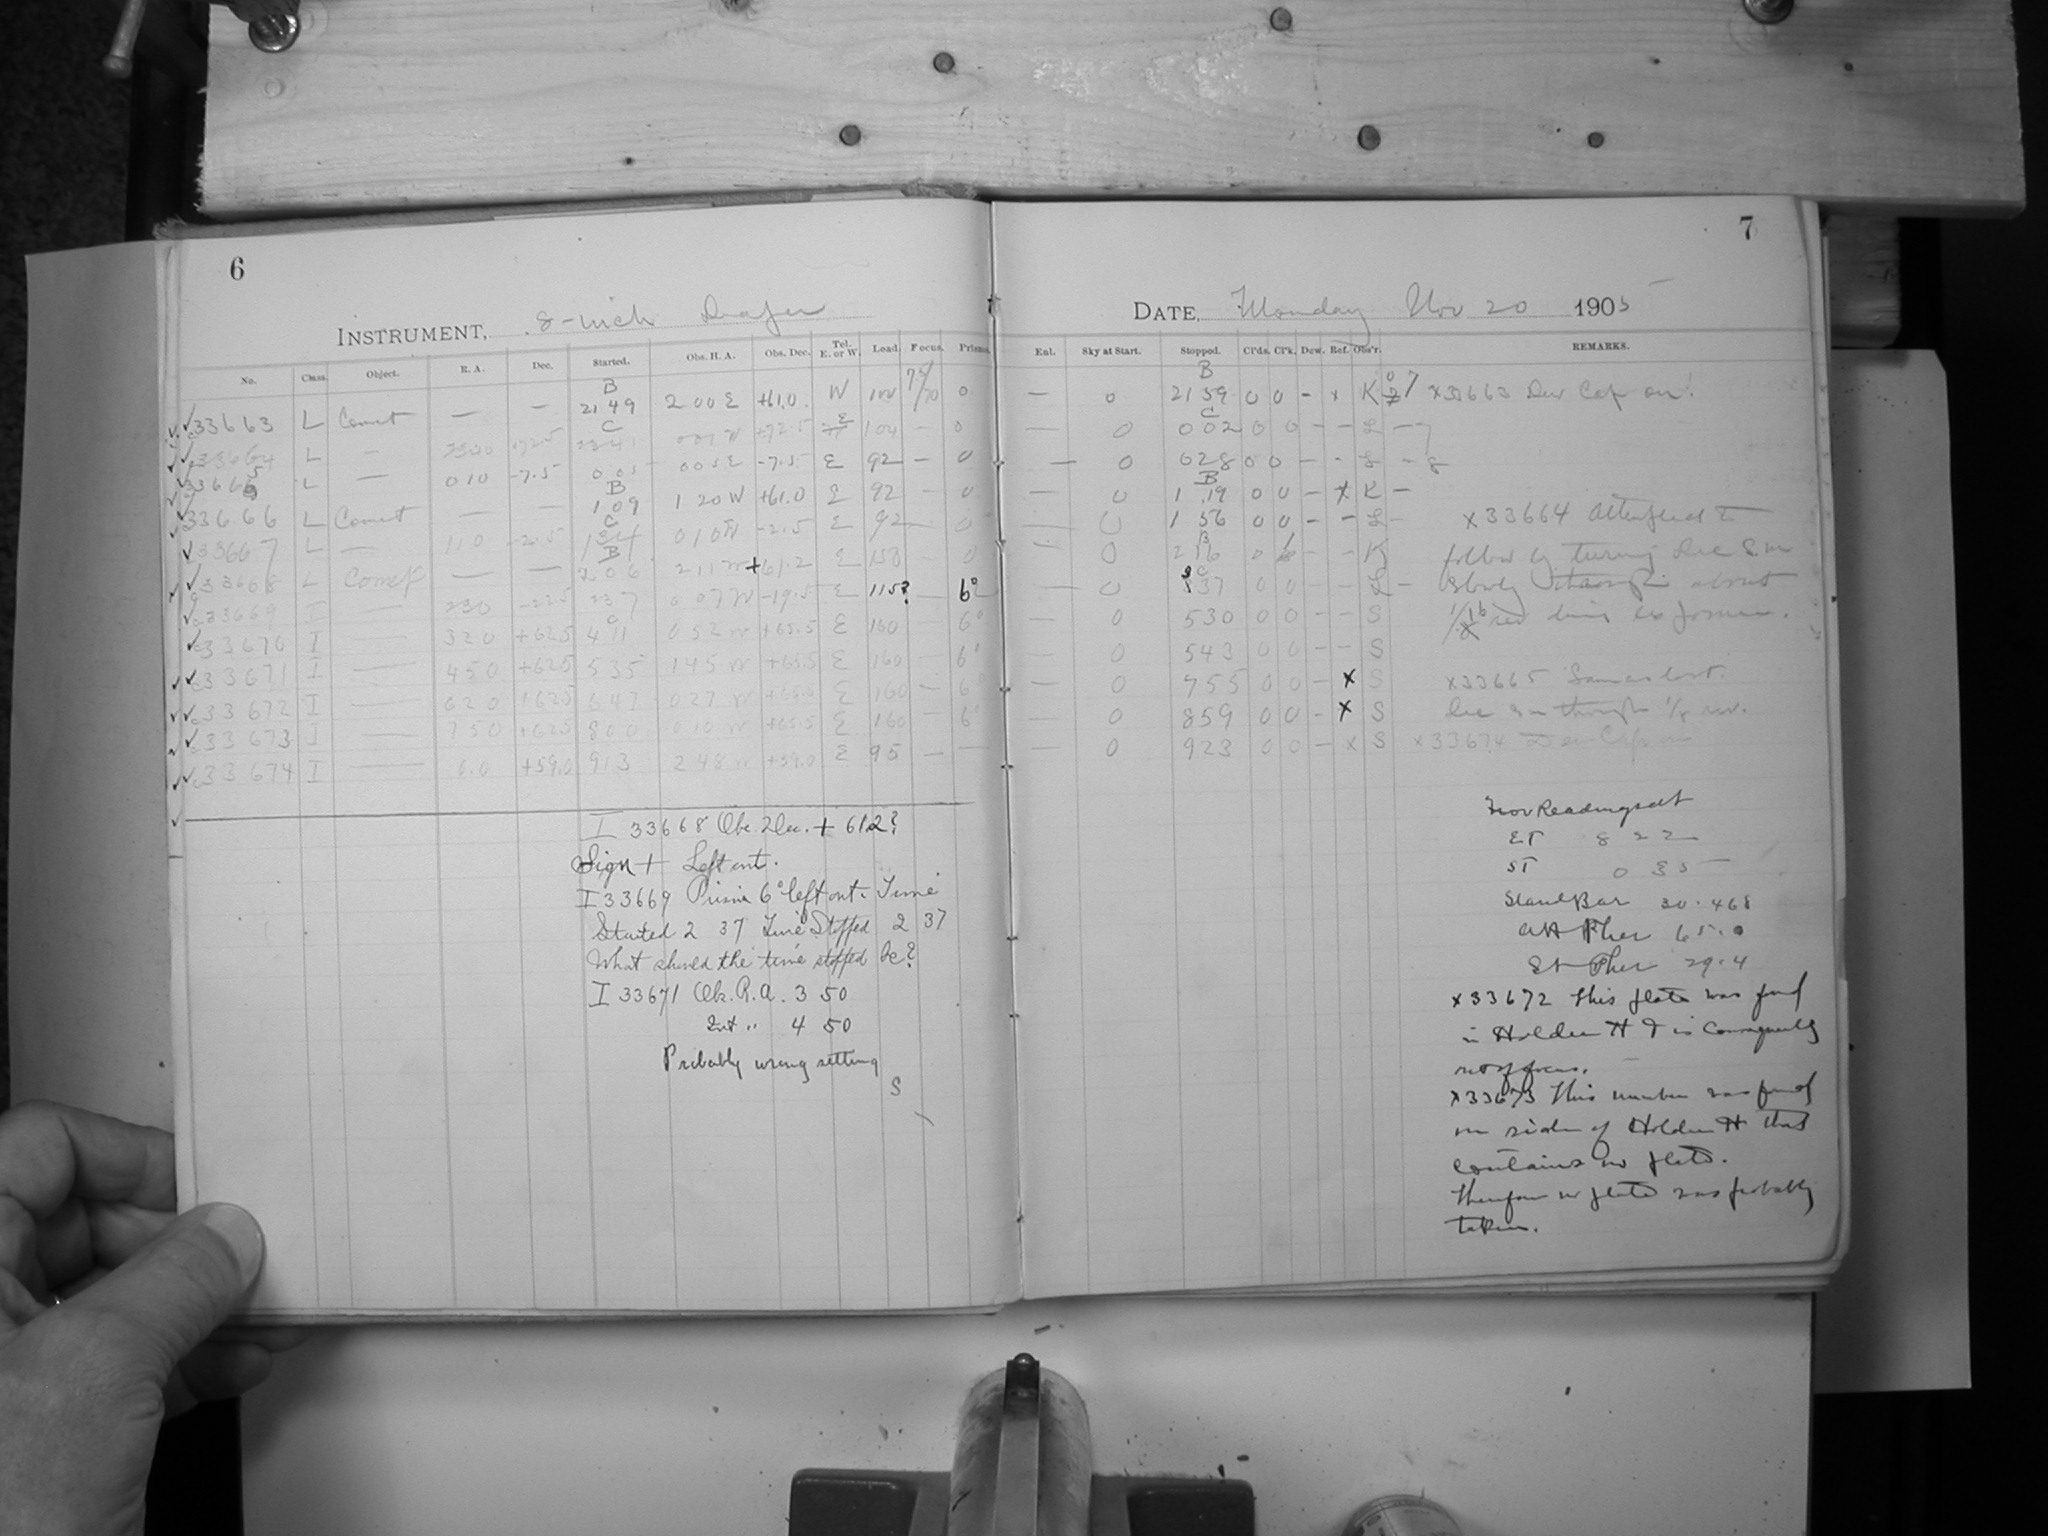 6
INSTRUMENT, 8-inch Draper
No. Class. Object. R. A. Dec. Started. Obs. H. A. Obs. Dec. Tel. E. or W. Load. Focus. Prisms.
B
33663 L Comet — — 21 49 2 00 E +61.0 W 100 0
C
33664 L — +72.5 E 104 — 0
33665 L — 0 10 -7.5 0 05 0 05 E -7.5 E 92 — 0
B
33666 L Comet — — 1 09 1 20 W +61.0 E 92 — 0
C
33667 L — 1 10 -2.5 0 10 W -2.5 E 92 — 0
B
33668 L Comet — — 2 06 2 11 W +61.2 E 150 0
33669 I — 2 37 0 07 W -19.5 E 115? — 6°
C
33670 I — 3 20 +62.5 4 11 0 52 W +65.5 E 160 6°
33671 I — 4 50 +62.5 5 35 1 45 W +65.5 E 160 — 6°
33672 I — 6 20 +62.5 6 47 0 27 W E 160 — 6°
33673 I — 7 50 +62.5 8 00 0 10 W +65.5 E 160 — 6°
33674 I — +59.0 9 13 2 48 W +59.0 E 95 — —
I 33668 Obs. Dec. + 61.2?
Sign + Left out.
I 33669 Prism 6° left out. Time
Started 2 37 Time Stopped 2 37
What should the time stopped be?
I 33671 Obs. R.A. 3 50
Int " 4 50
Probably wrong setting
S
7
DATE, Monday Nov 20 1905
Enl. Sky at Start. Stopped. Cl'ds. Cl'k. Dew. Ref. Obs'r. REMARKS.
B
— 0 21 59 0 0 - x K x33663 Dew Cap on!
C
— 0 0 02 0 0 - - L - 7
— 0 0 28 0 0 - - L - 8
B
— 0 1 19 0 0 - x K -
— 0 1 56 0 0 - - L - x33664 Attempted to
B
— 0 2 16 0 - - K follow by turning Dec S.m
C
— 0 37 0 0 - - L - slowly through about
— 0 5 30 0 0 - - S
— 0 5 43 0 0 - - S
— 0 7 55 0 0 - x S x33665 Same as last.
— 0 8 59 0 0 - x S Dec s m through 1/8 rev.
— 0 9 23 0 0 - x S x33674 Dew Cap on
ET 8 22
ST 0 35
Stand Bar 30.468
Att Ther 65.0
Ext Ther 29.4
x33672 This plate was found
in Holder H & is consequently
out of focus.
x33673 This number was found
on side of Holder H that
contains no plate.
Therefore no plate was probably
taken.